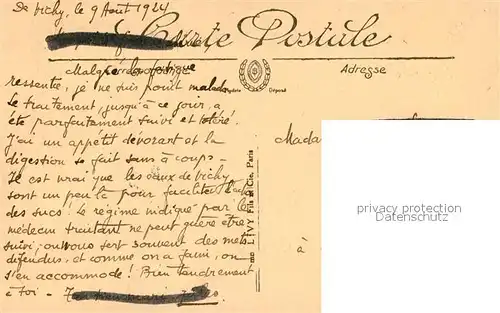 De Vichy, le 9 Août 1924
Carte Postale
Correspondance
Adresse
Malgré la fatigue
ressentie, je ne suis point malade
le traitement, jusqu'à ce jour, a
été parfaitement suivi et toléré.
J'ai un appétit dévorant et la
digestion se fait sans à coups -
Il est vrai que les eaux de Vichy
sont un peu là pour faciliter l'
des sucs. le régime indiqué par le
médecin traitant ne peut guère être
suivi; on vous sert souvent des mets
défendus, et comme on a faim, on
s'en accommode! Bien tendrement
à toi -
LEVY Fils & Cie, Paris
Mada
à
privacy protection
Datenschutz